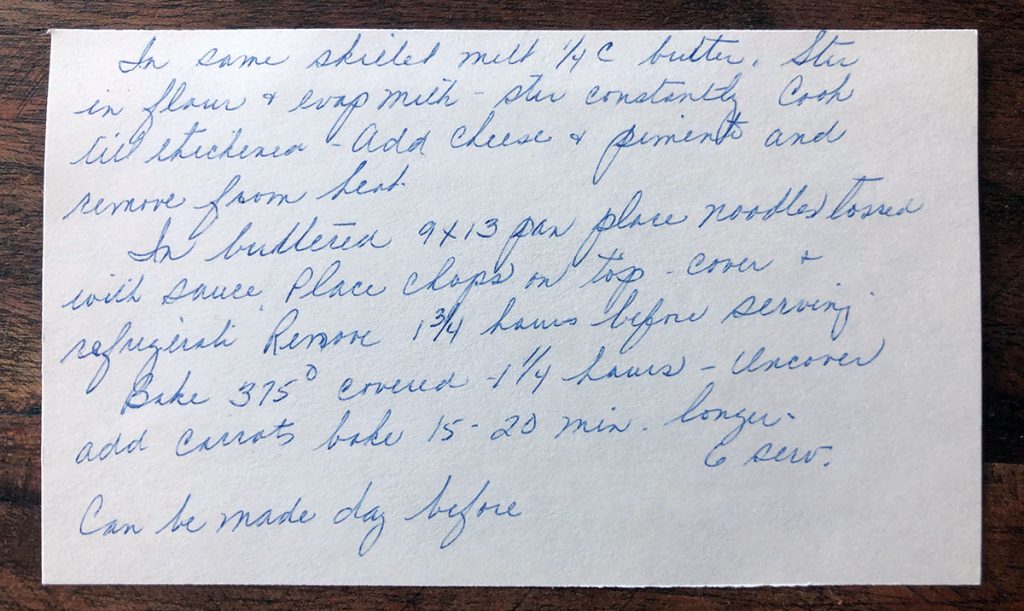 In same skillet melt 1/4 C butter. Stir
in flour & evap milk - stir constantly Cook
till thickened - Add cheese & pimento and
remove from heat.
In buttered 9x13 pan place noodles tossed
with sauce. Place chops on top - cover &
refrigerate Remove 1 3/4 hours before serving.
Bake 375° covered - 1 1/4 hours - Uncover
add carrots bake 15 - 20 min. longer.
6 serv.
Can be made day before